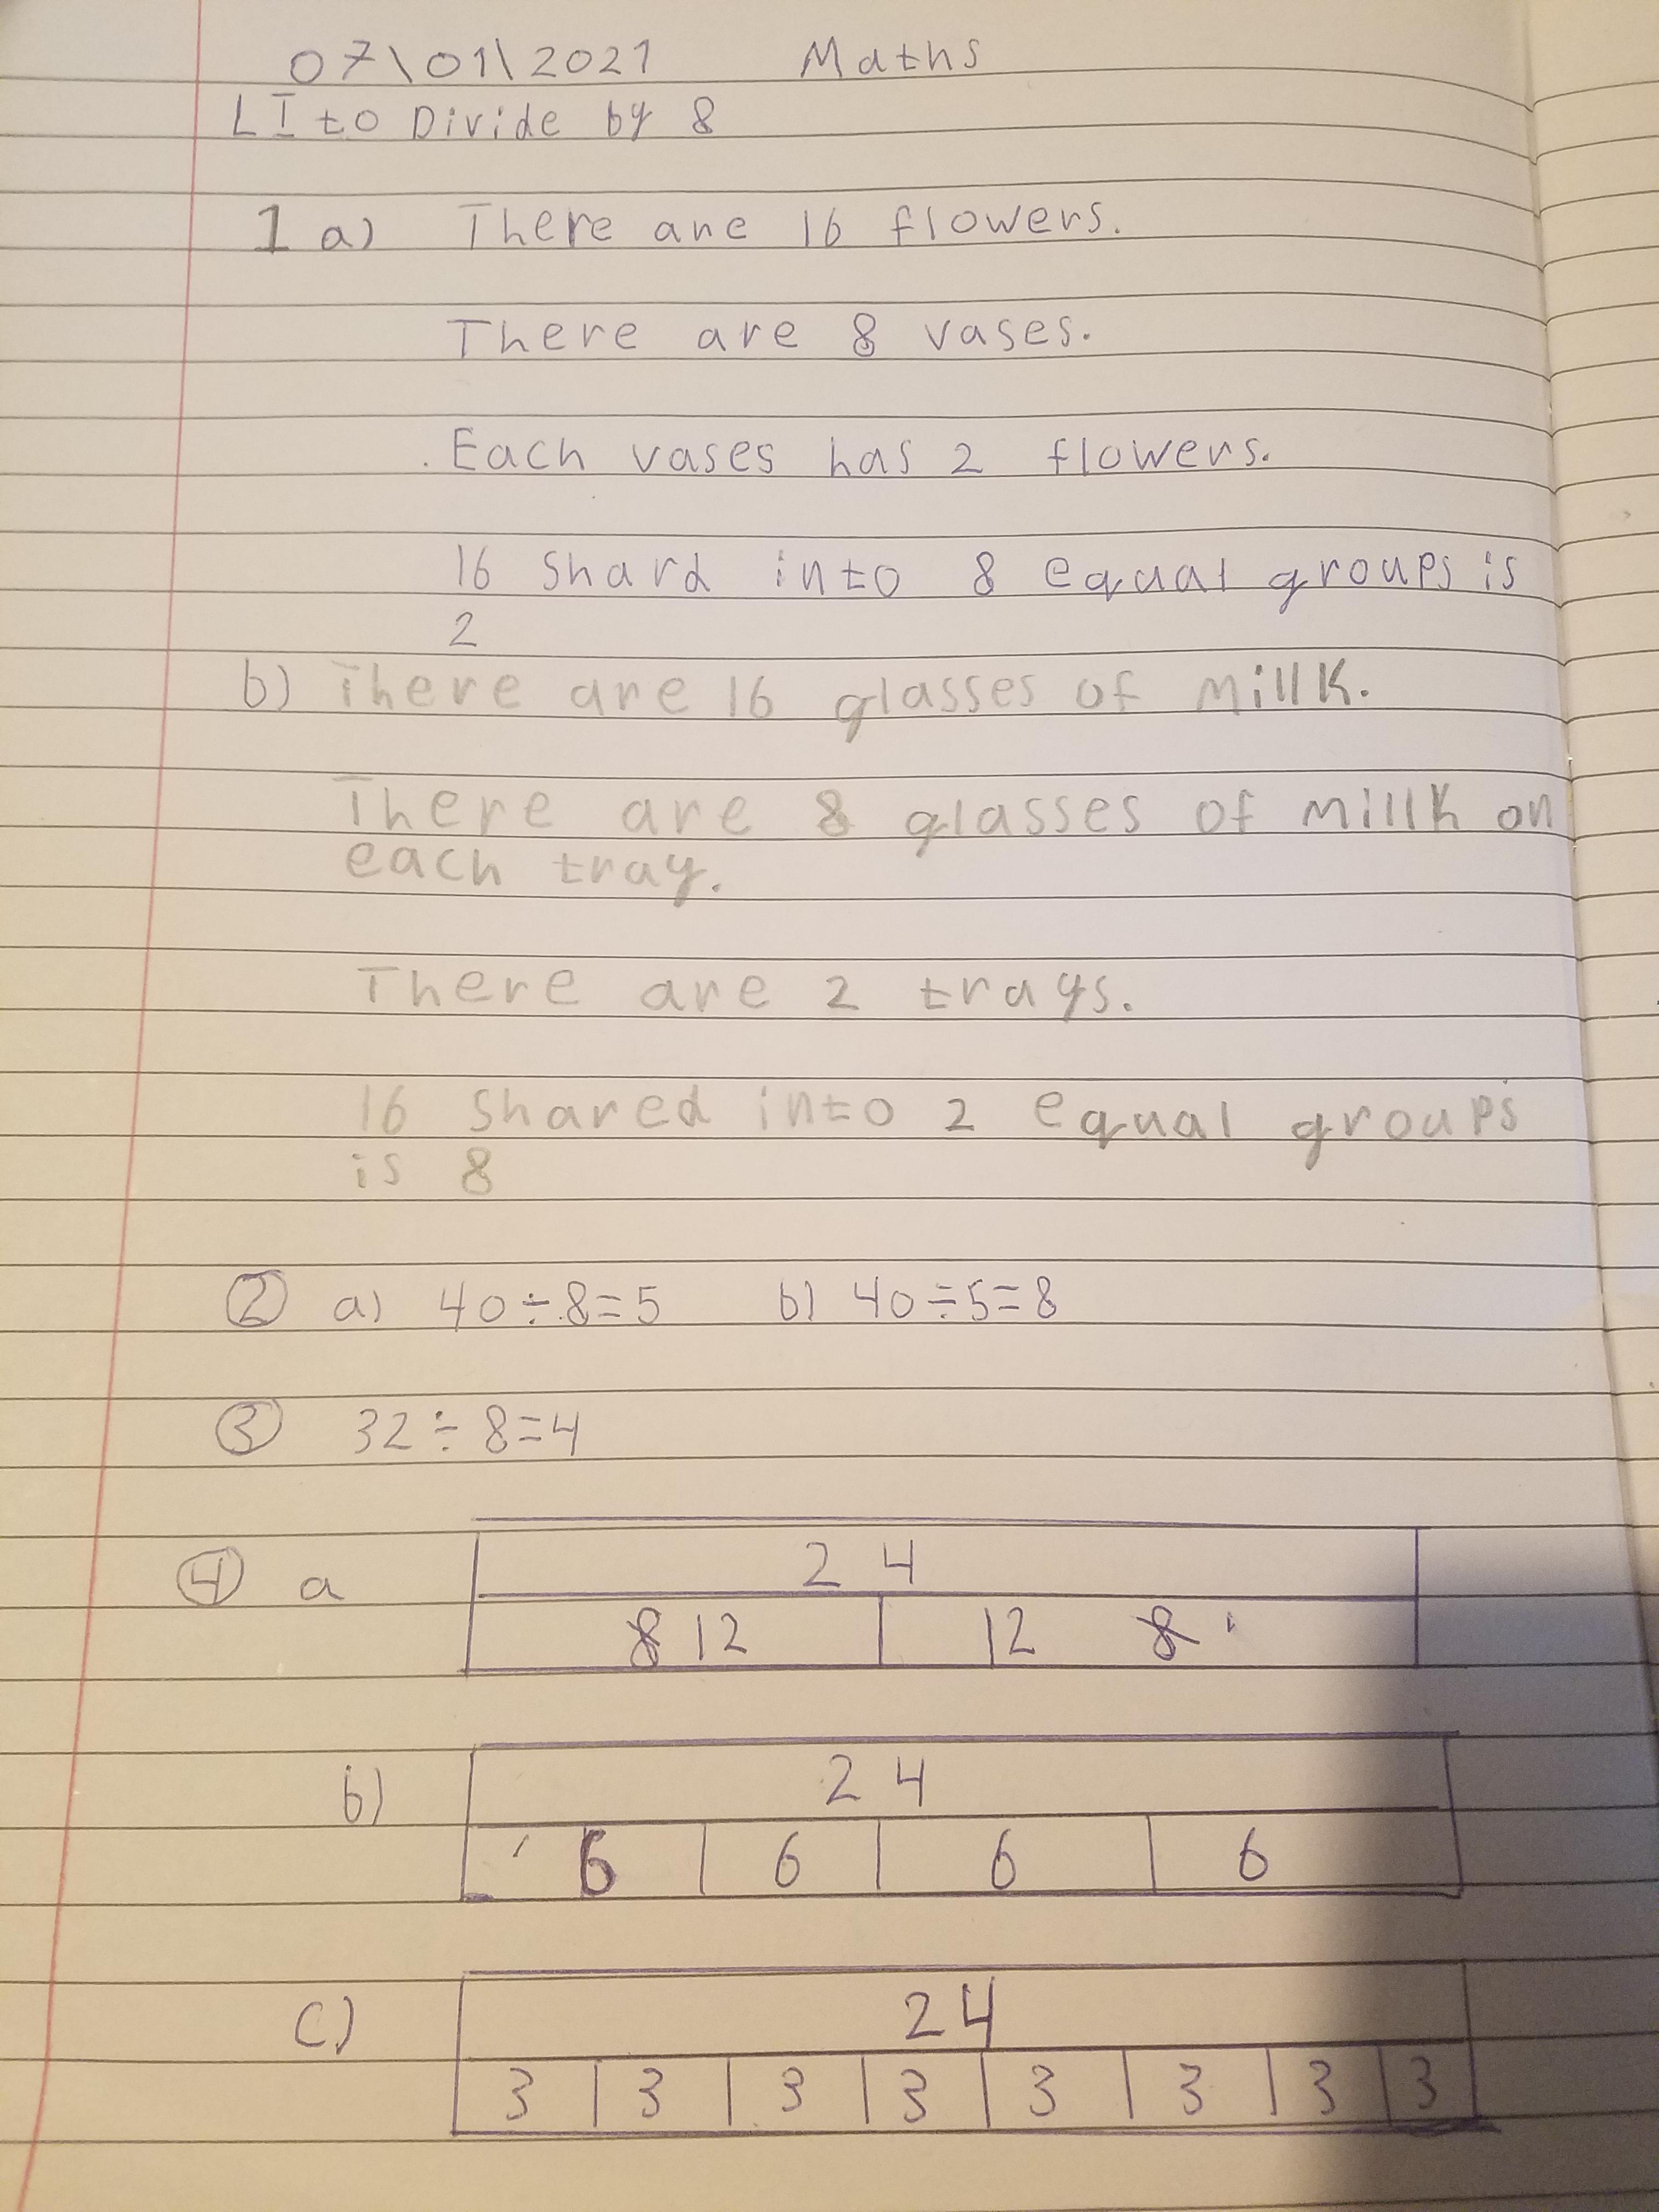 07\01\2021 Maths
LI to Divide by 8
1 a) There are 16 flowers.
There are 8 vases.
Each vases has 2 flowers.
16 Shard into 8 equal groups is
2
b) There are 16 glasses of Millk.
There are 8 glasses of Millk on
each tray.
There are 2 trays.
16 Shared into 2 equal groups
is 8
② a) 40÷8=5 b) 40÷5=8
③ 32÷8=4
④ a 24
8 12 12 8
b) 24
6 6 6 6
c) 24
3 3 3 3 3 3 3 3